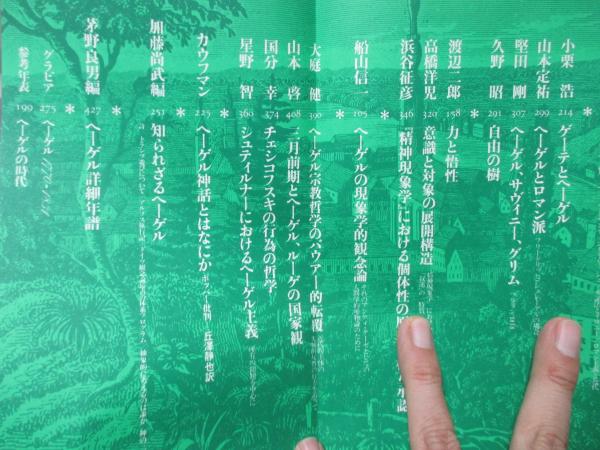 小栗 浩 214 ゲーテとヘーゲル
山本定祐 299 ヘーゲルとロマン派
堅田 剛 307 ヘーゲル、サヴィニー、グリム
久野 昭 291 自由の樹
*
渡辺二郎 158 力と悟性
高橋洋児 320 意識と対象の展開構造
浜谷征彦 346 『精神現象学』における個体性の
*
船山信一 195 ヘーゲルの現象学的観念論
*
大庭 健 390 ヘーゲル宗教哲学のバウアー的転覆
山本 啓 408 三月前期とヘーゲル、ルーゲの国家観
国分 幸 374 チェシコフスキの行為の哲学
星野 智 360 シュティルナーにおけるヘーゲル主義
*
カウフマン 225 ヘーゲル神話とはなにか ポッパー批判 丘澤静也訳
*
加藤尚武編 251 知られざるヘーゲル
*
茅野良男編 427 ヘーゲル詳細年譜
*
グラビア 275 ヘーゲル 1770-1831
参考年表 199 ヘーゲルの時代